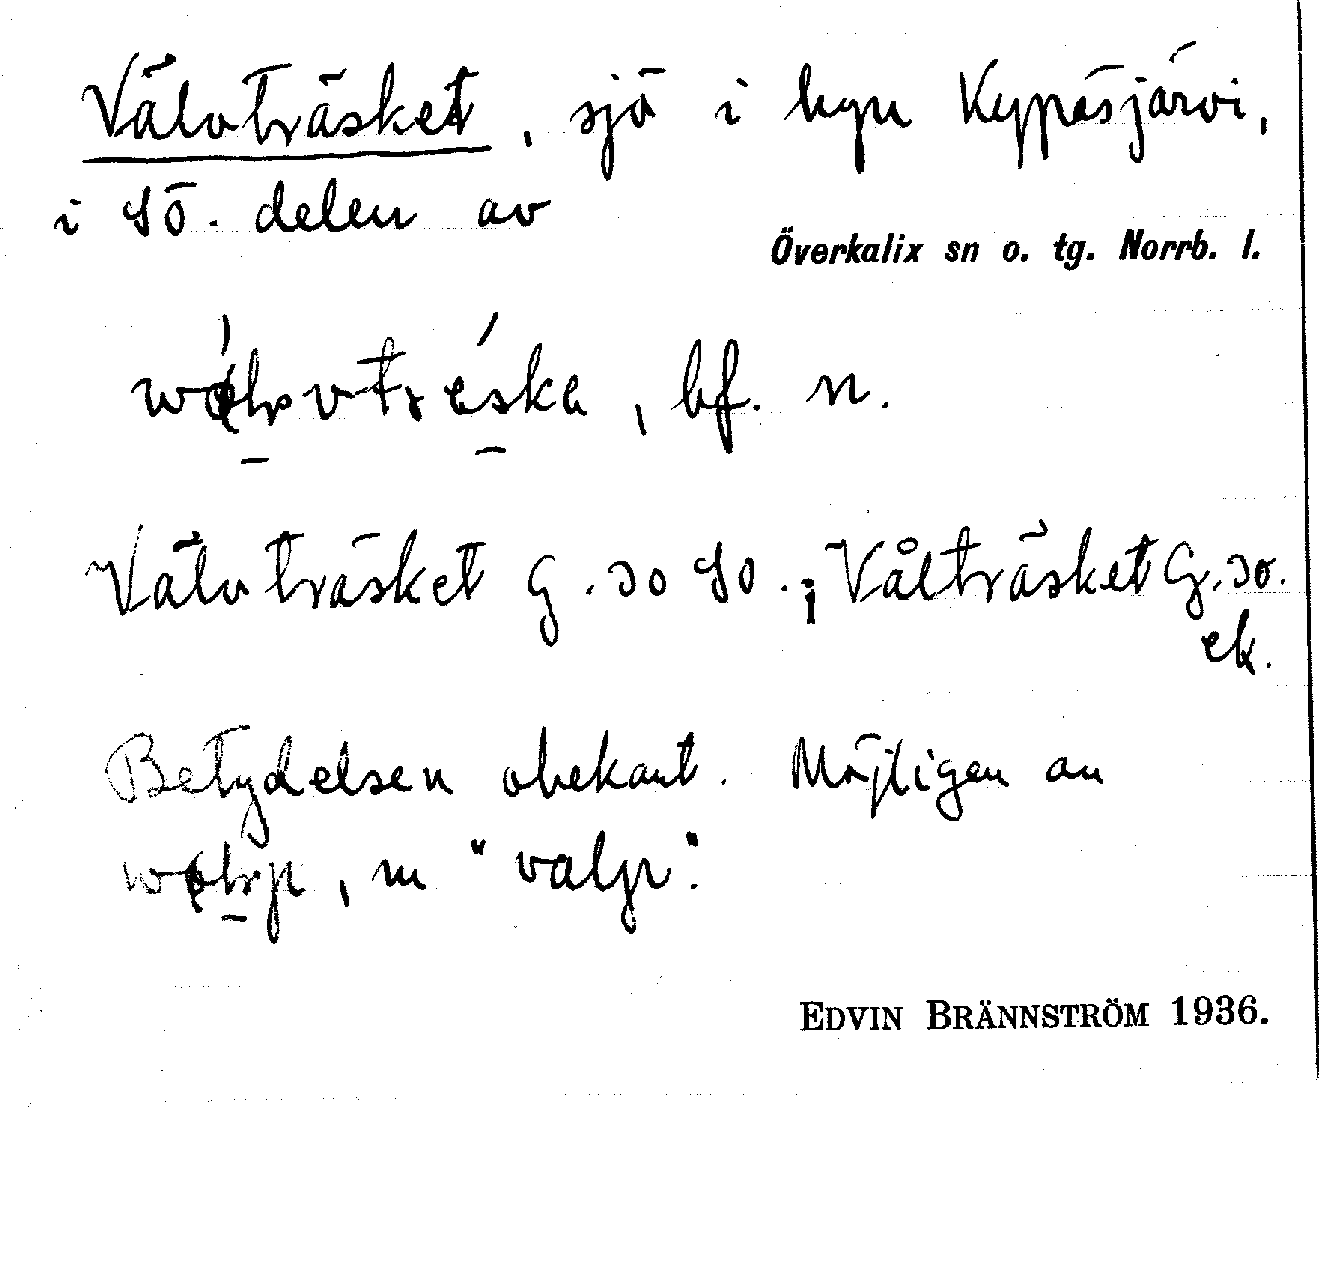 Välvträsket, sjö i byn Kypasjärvi,
i SÖ. delen av
Överkalix sn o. tg. Norrb. l.
bf. n.
Välvträsket G. 30 SO.; Vålträsket G. 30.
ek.
Betydelsen obekant. Möjligen an
, m "valp".
EDVIN BRÄNNSTRÖM 1936.